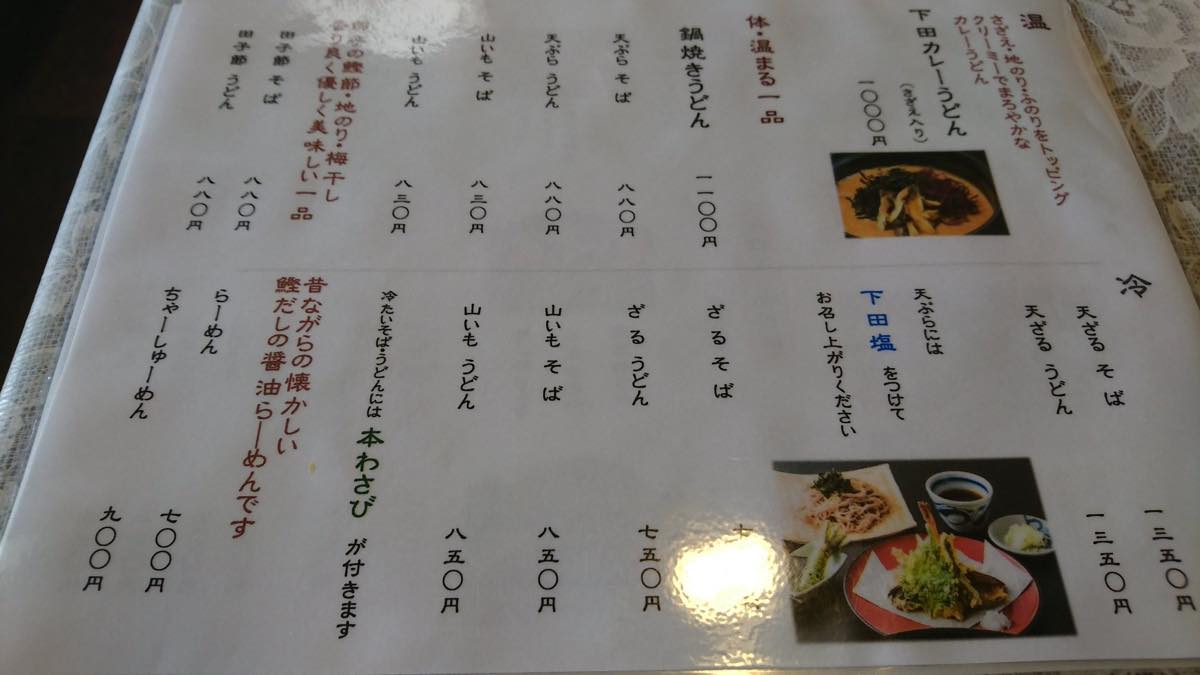 温
さざえ・地のり・ふのりをトッピング
クリーミーでまろやかな
カレーうどん
下田カレーうどん
(さざえ入り)
一〇〇〇円
体・温まる一品
鍋焼きうどん
一一〇〇円
天ぷら そば
八八〇円
天ぷら うどん
八八〇円
山いも そば
八三〇円
山いも うどん
八三〇円
の鰹節・地のり・梅干し
香り良く優しく美味しい一品
田子節 そば
八八〇円
田子節 うどん
八八〇円
冷
天ざる そば
一三五〇円
天ざる うどん
一三五〇円
天ぷらには
下田塩 をつけて
お召し上がりください
ざる そば
七
ざる うどん
七五〇円
山いも そば
八五〇円
山いも うどん
八五〇円
冷たいそば・うどんには 本わさび が付きます
昔ながらの懐かしい
鰹だしの醤油らーめんです
らーめん
七〇〇円
ちゃーしゅーめん
九〇〇円